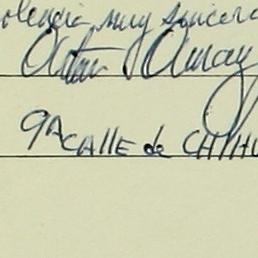 olencia muy sincera
Arturo Amay
9A CALLE de CHIHU